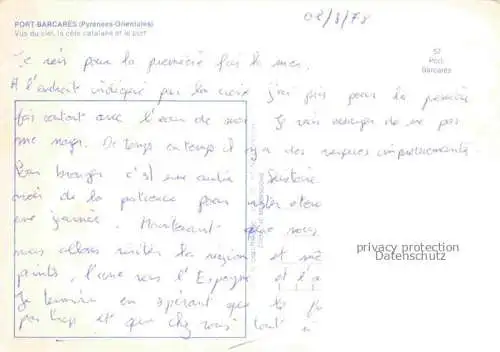 PORT-BARCARES (Pyrénées-Orientales)
Vue du ciel, la côte catalane et le port
08/8/78
57
Port
Barcarès
Je vois pour la première fois la mer.
A l'endroit indiqué par la croix j'ai pris pour la première
fois contact avec l'eau de mer. Je vais essayer de ne pas
me noyer. De temps en temps il y a des vagues impressionnantes
Pour bronzer c'est une autre histoire
avoir de la patience pour rester
une journée. Maintenant que nous
nous allons visiter la région et
l'une vers l'Espagne et l'a
Je termine en espérant que tu
pas trop et que chez vous tout
privacy protection
Datenschutz